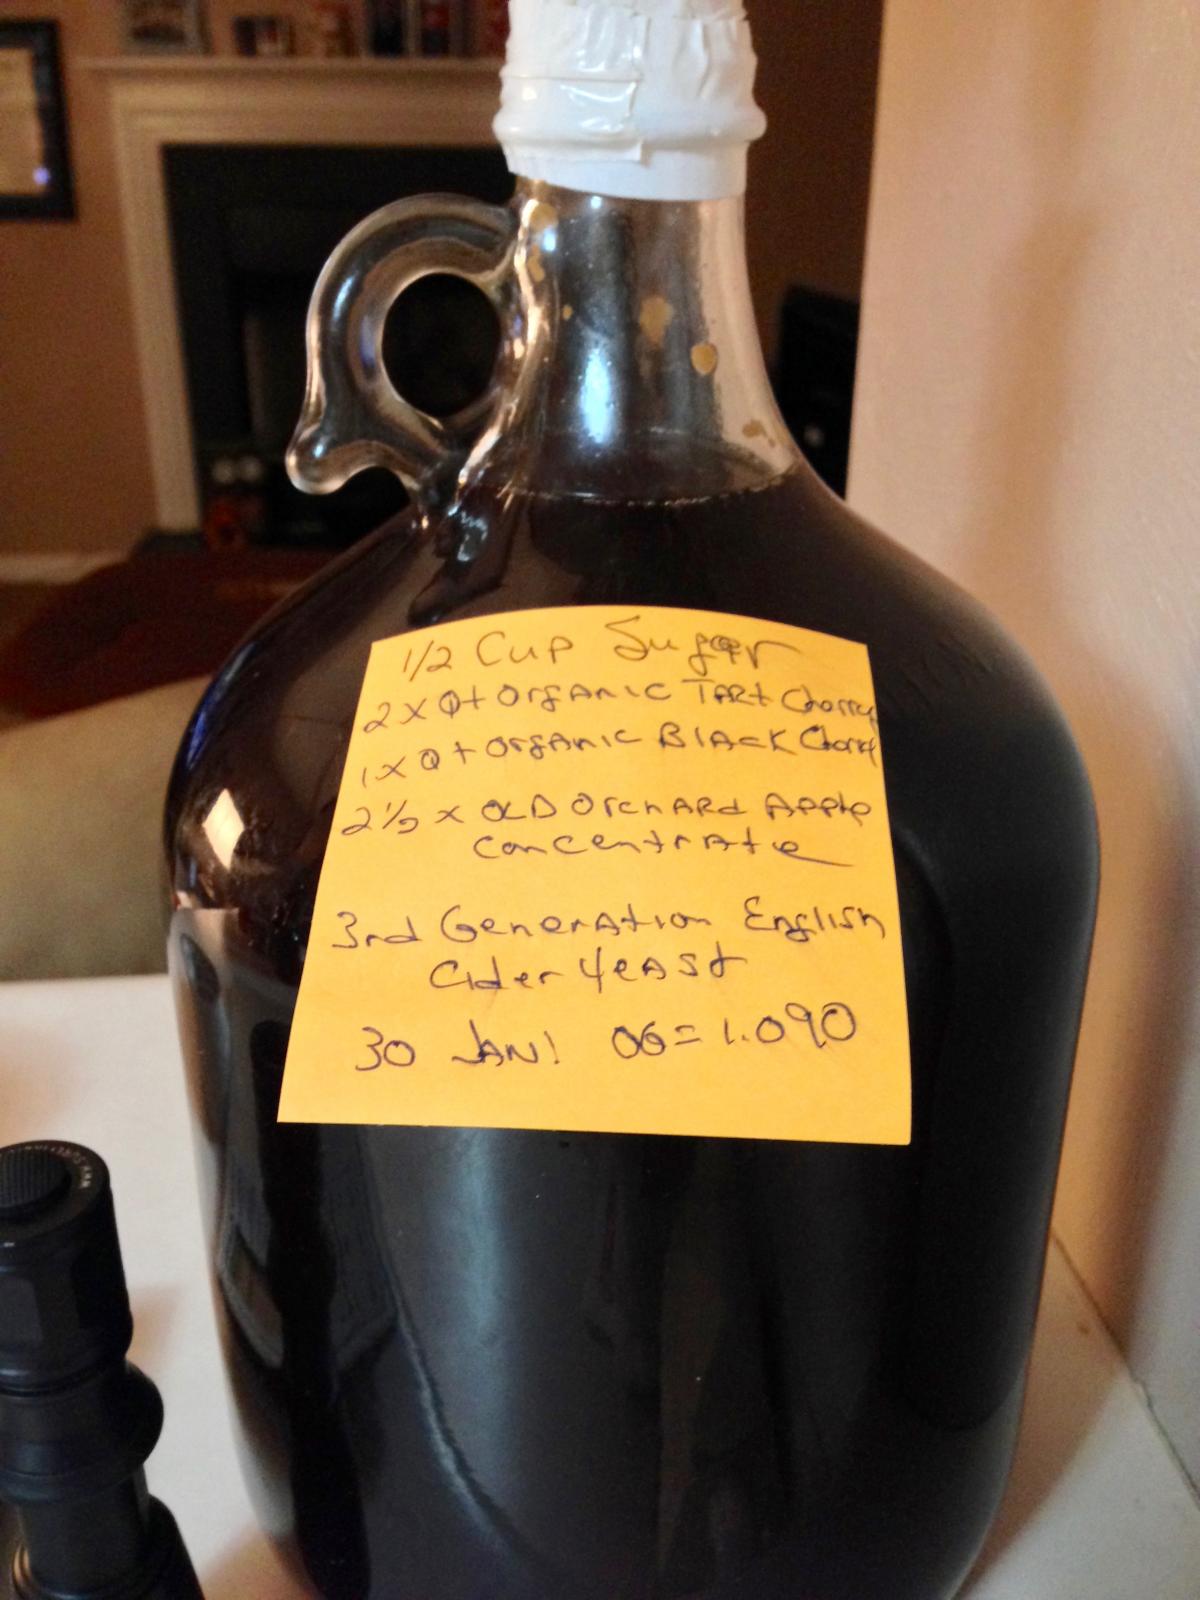 1/2 Cup Sugar
2 x Qt Organic Tart Cherry
1 x Qt Organic Black Cherry
2 1/2 x Old Orchard Apple
Concentrate
3rd Generation English
Cider Yeast
30 JAN! OG = 1.090